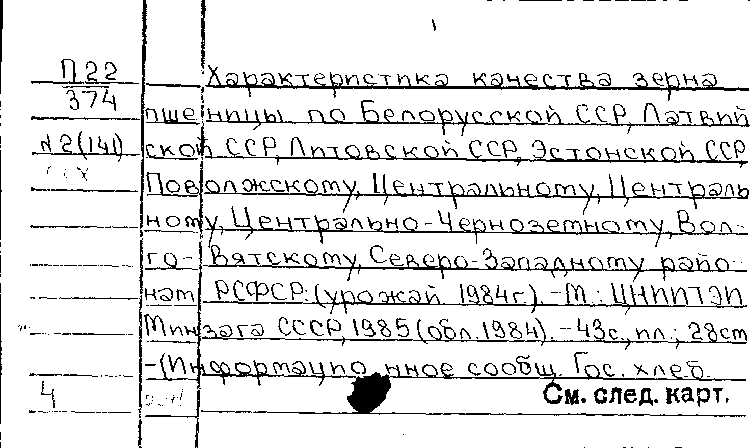 П22
374
N2(141)
Характеристика качества зерна
пшеницы по Белорусской ССР, Латвий
ской ССР, Литовской ССР, Эстонской ССР,
Поволжскому, Центральному, Централь
ному, Центрально-Черноземному, Вол-
го-Вятскому, Северо-Западному райо-
нам РСФСР: (урожай 1984г). -М.: ЦНИИТЭИ
Минзага СССР, 1985 (обл. 1984). -43с., ил.; 28см
-(Информационное сообщ. Гос. хлеб.
4
См. след. карт.